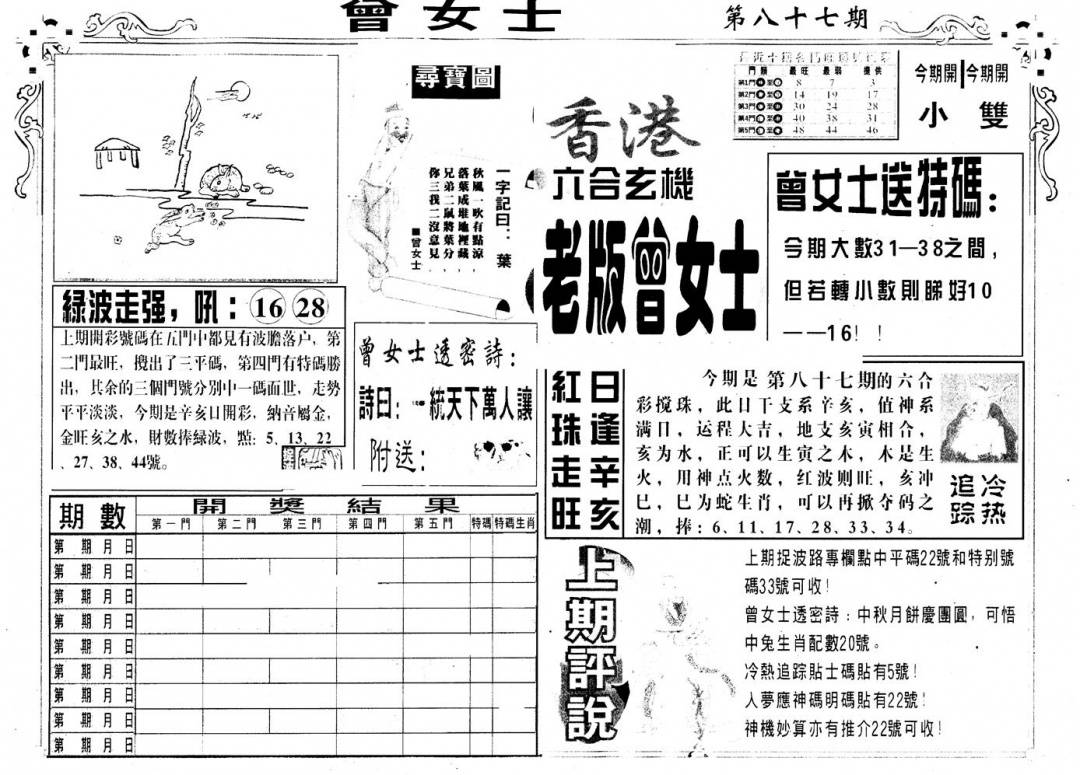 曾女士
第八十七期
尋寶圖
一字記曰：葉
秋風一吹有點涼，
落葉成堆地裡藏，
兄弟二鼠將葉分，
你三我二沒意見，
■曾女士
香港
六合玄機
老版曾女士
門類 最旺 最弱 提供
第1門 至 8 7 3
第2門 至 14 19 17
第3門 至 30 24 28
第4門 至 40 38 31
第5門 至 48 44 46
今期開 今期開
小 雙
曾女士送特碼：
今期大數31—38之間，
但若轉小數則睇好10
——16！！
綠波走强，吼：16 28
上期開彩號碼在五門中都見有波膽落户，第
二門最旺，攪出了三平碼，第四門有特碼勝
出，其余的三個門號分别中一碼面世，走勢
平平淡淡，今期是辛亥日開彩，納音屬金，
金旺亥之水，財數捧綠波，點：5、13、22
、27、38、44號。
曾女士透密詩：
詩曰：一統天下萬人讓
附送：
紅珠走旺
日逢辛亥
今期是第八十七期的六合
彩搅珠，此日干支系辛亥，值神系
满日，运程大吉，地支亥寅相合，
亥为水，正可以生寅之木，木是生
火，用神点火数，红波则旺，亥冲
巳，巳为蛇生肖，可以再掀夺码之
潮，捧：6、11、17、28、33、34。
冷热
追踪
期數 開獎結果
第一門 第二門 第三門 第四門 第五門 特碼 特碼生肖
第 期 月 日
第 期 月 日
第 期 月 日
第 期 月 日
第 期 月 日
第 期 月 日
第 期 月 日
第 期 月 日
第 期 月 日
上期評說
上期捉波路專欄點中平碼22號和特别號
碼33號可收！
曾女士透密詩：中秋月餅慶團圓，可悟
中兔生肖配數20號。
冷熱追踪貼士碼貼有5號！
人夢應神碼明碼貼有22號！
神機妙算亦有推介22號可收！